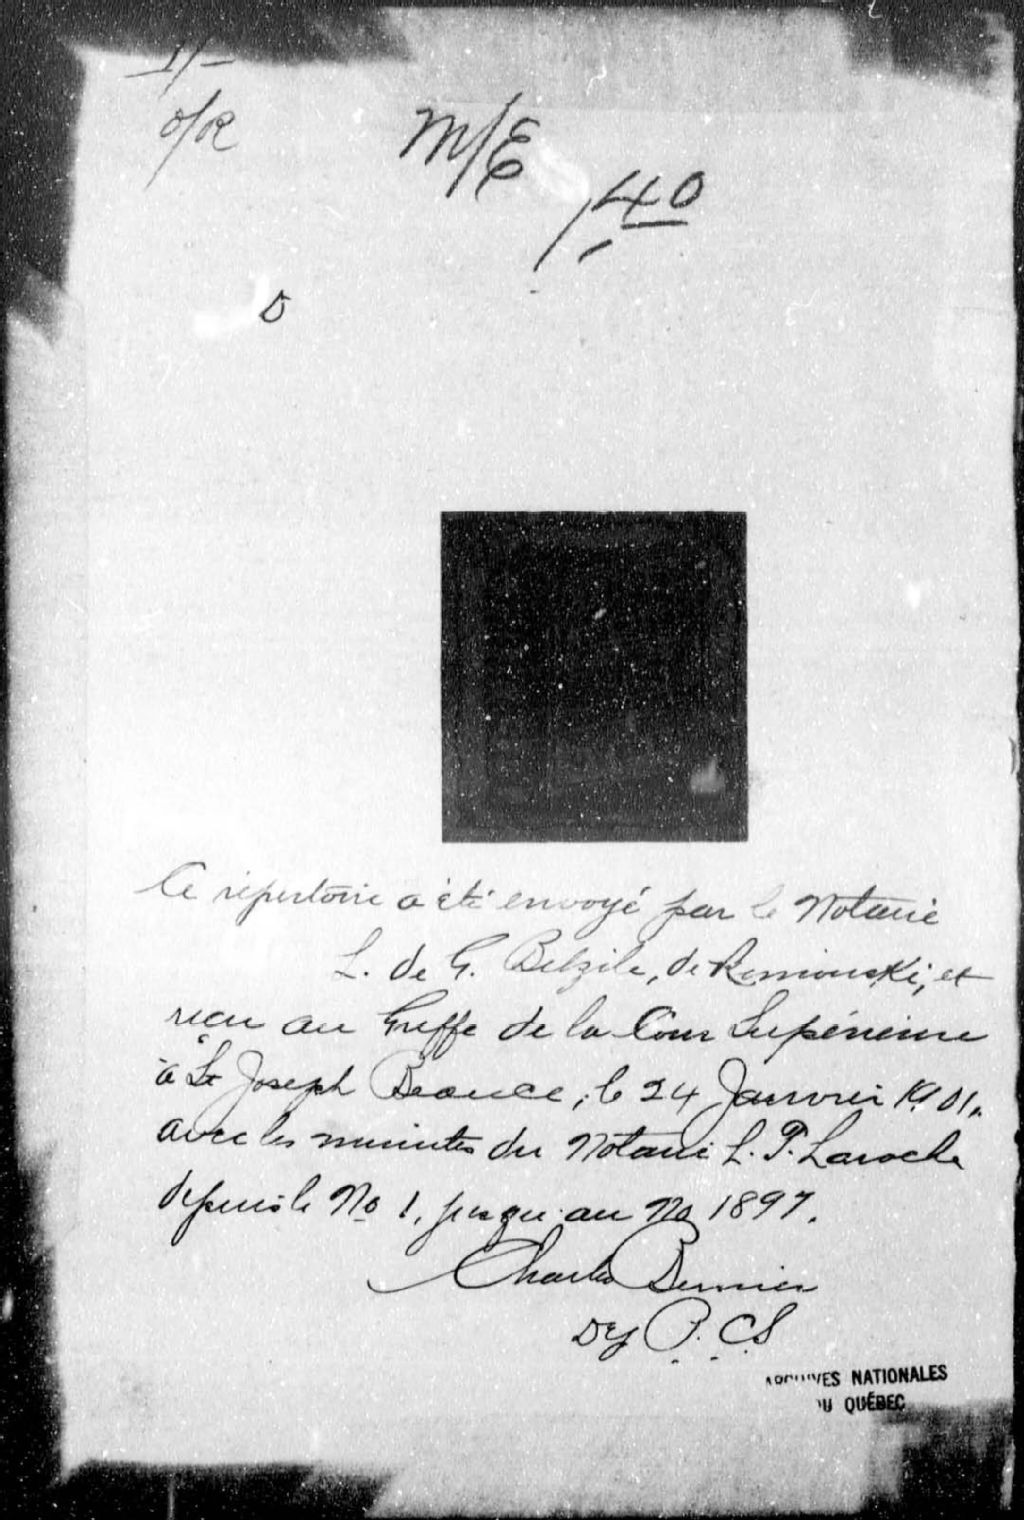 1/-
o/R
M/E
/40
D
Ce répertoire a été envoyé par le Notaire
L. de G. Belzile, de Rimouski, et
reçu au Greffe de la Cour Supérieure
à St Joseph Beauce, le 24 Janvier 1901,
avec les minutes du Notaire L. P. Laroche
depuis le No 1, jusqu'au No 1897.
Charles Bernier
Dy P. C. S
ARCHIVES NATIONALES
DU QUÉBEC